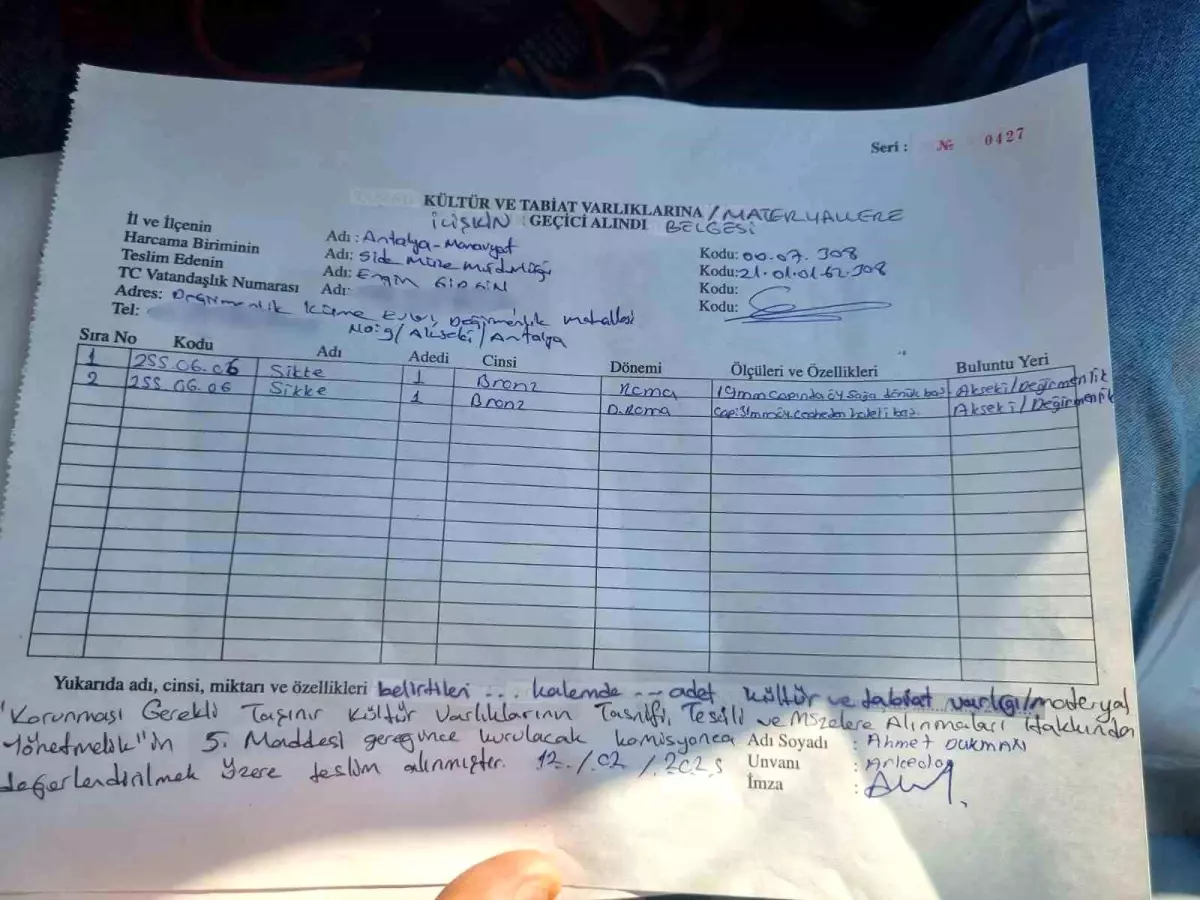 Seri : № 0427
KÜLTÜR VE TABİAT VARLIKLARINA / MATERYALLERE
İLİŞKİN GEÇİCİ ALINDI BELGESİ
İl ve İlçenin Adı : Antalya-Manavgat Kodu: 00.07.308
Harcama Biriminin Adı: Side Müze Müdürlüğü Kodu: 21.01.01.62.308
Teslim Edenin Adı: Engin Kodu:
TC Vatandaşlık Numarası Adı: Kodu:
Adres: Değirmenlik Küme Evleri, Değirmenlik mahallesi
Tel: No:9/Akseki/Antalya
Sıra No Kodu Adı Adedi Cinsi Dönemi Ölçüleri ve Özellikleri Buluntu Yeri
1 255.06.06 Sikke 1 Bronz Roma 19mm çapında öy sağa dönük baş Akseki/Değirmenlik
2 255.06.06 Sikke 1 Bronz D.Roma Çap:31mm öy.cepheden haleli baş. Akseki/Değirmenlik
Yukarıda adı, cinsi, miktarı ve özellikleri belirtilen ... kalemde ... adet kültür ve tabiat varlığı/materyal
"Korunması Gerekli Taşınır Kültür Varlıklarının Tasnifi, Tescili ve Müzelere Alınmaları Hakkında
Yönetmelik"in 5. Maddesi gereğince kurulacak komisyonca Adı Soyadı : Ahmet DUKMAN
değerlendirilmek üzere teslim alınmıştır. 12./.02 /.2025 Unvanı : Arkeolog
İmza :